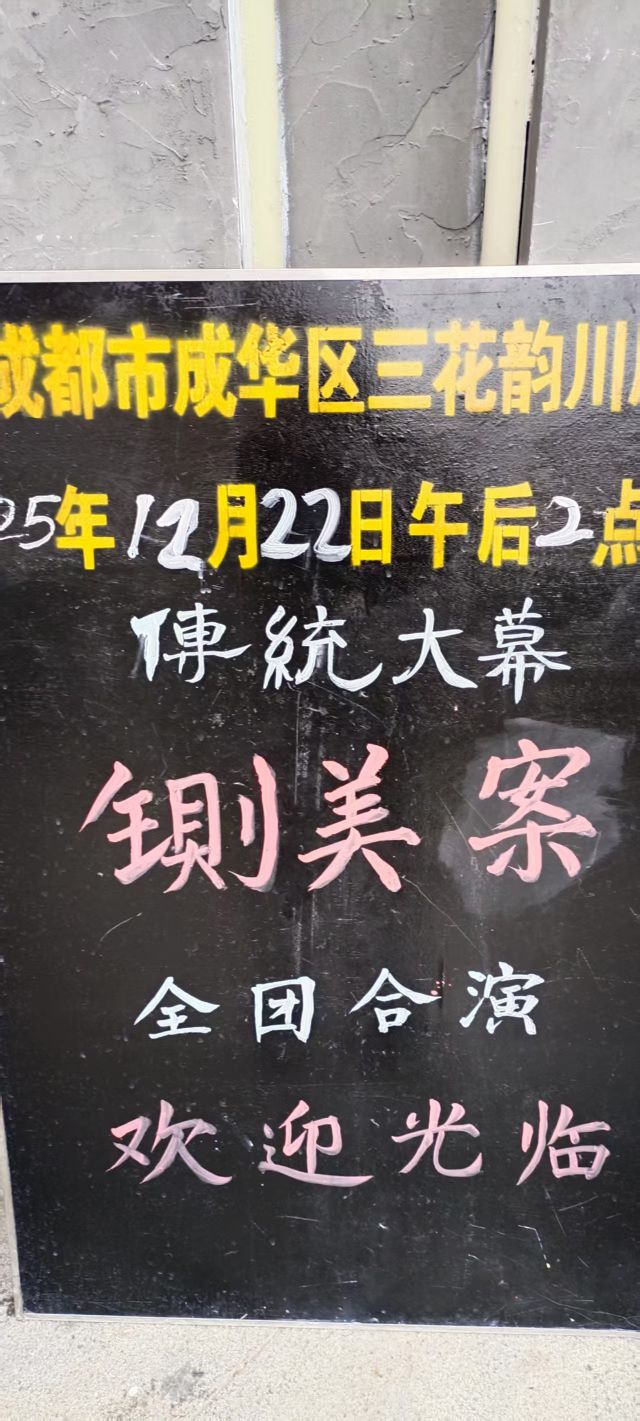 成都市成华区三花韵川
25年12月22日午后2点
傳統大幕
铡美案
全团合演
欢迎光临